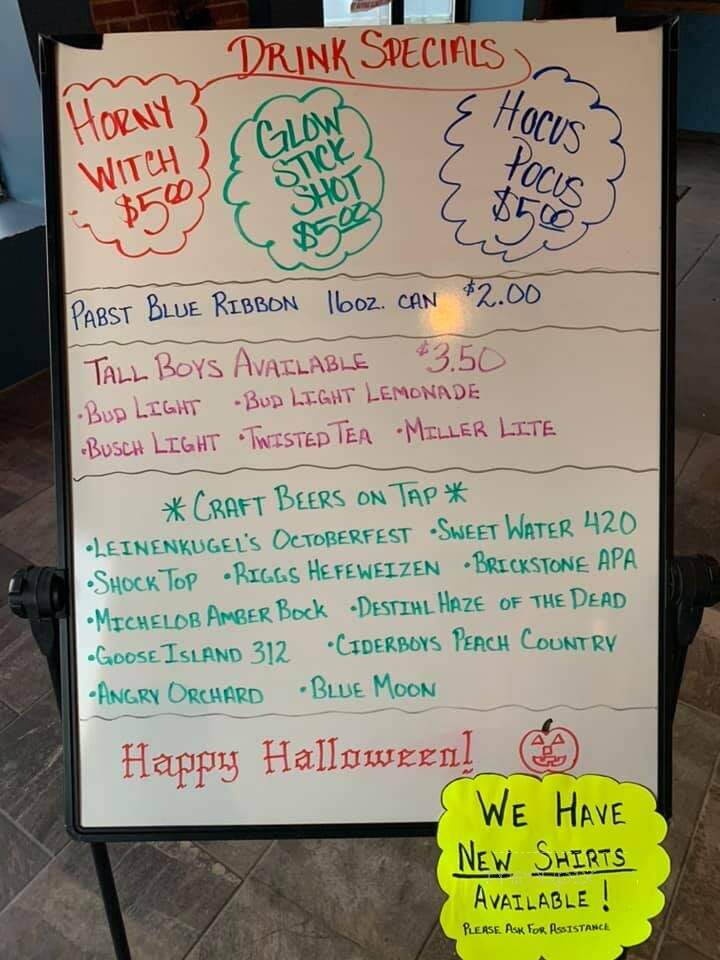 DRINK SPECIALS
HORNY
WITCH
$5.00
GLOW
STICK
SHOT
$5.00
HOCUS
POCUS
$5.00
PABST BLUE RIBBON 16oz. CAN $2.00
TALL BOYS AVAILABLE $3.50
•BUD LIGHT •BUD LIGHT LEMONADE
•BUSCH LIGHT •TWISTED TEA •MILLER LITE
* CRAFT BEERS ON TAP *
•LEINENKUGEL'S OCTOBERFEST •SWEET WATER 420
•SHOCK TOP •RIGGS HEFEWEIZEN •BRICKSTONE APA
•MICHELOB AMBER BOCK •DESTIHL HAZE OF THE DEAD
•GOOSE ISLAND 312 •CIDERBOYS PEACH COUNTRY
•ANGRY ORCHARD •BLUE MOON
Happy Halloween!
WE HAVE
NEW SHIRTS
AVAILABLE!
PLEASE ASK FOR ASSISTANCE